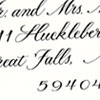 r. and Mrs. M
11 Huckleber
reat Falls, M
59404